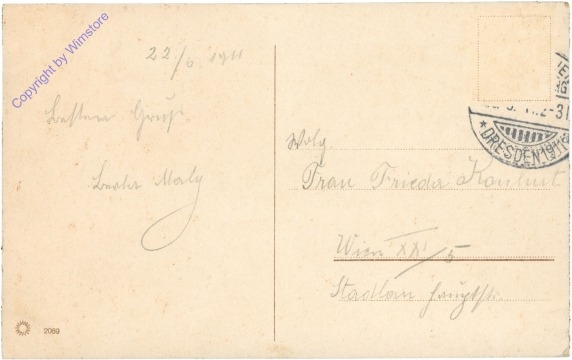 Copyright by Wimstore
22/6 1911
Besten Gruß
Berta Maly
Wolg.
Frau Frieda
Wien XXI/5
Stadlau Hauptstr.
✶DRESDEN
2069